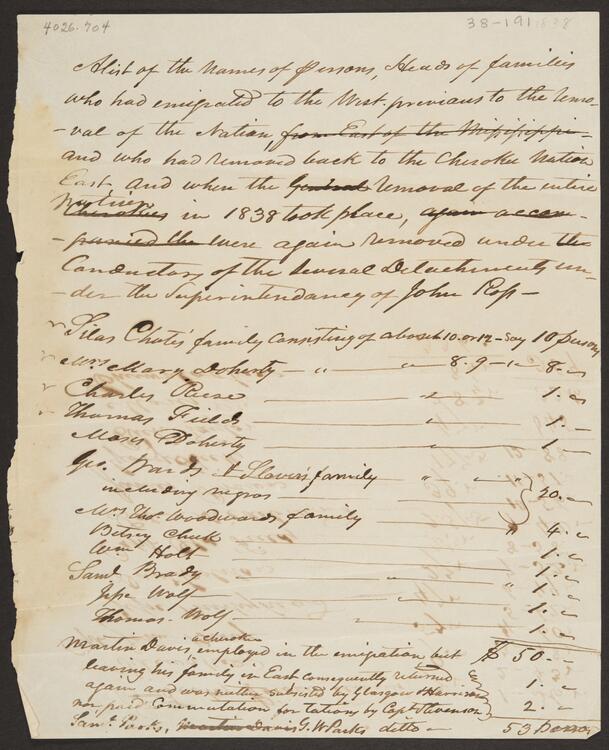 4026.704
38-191
A list of the Names of Persons, Heads of families
who had emigrated to the West previous to the remo-
-val of the Nation, from East of the Mississippi-
and who had removed back to the Cherokee Nation
East and when the General removal of the entire
Nation
Cherokees in 1838 took place, again accom-
-panied the were again removed under the
Conductors of the several Detachments un-
-der the Superintendancy of John Ross -
Silas Choate's family consisting of about 10. or 12 - say 10 persons
Mrs. Mary Doherty - " " 8. 9 - " 8 "
Charles Reese 1. "
Thomas Fields 1. -
Moses Doherty 1. -
Geo. Wards & Slover's family " - "
including negros 20. -
Mrs. Tho. Woodwards family " 4. "
Betsey Chuck 1. "
Wm. Holt 1. "
Saml. Brady " 1. "
Jesse Wolf " 1. "
Thomas Wolf 1. "
a cherokee
Martin Davis employed in the emigration but 50. -
leaving his family in East consequently returned
again and was neither subsisted by Glasgow & Harrison 1. "
nor paid Commutation for rations by Capt Stevenson 2. "
Saml. Parks, Martin Davis G. W. Parks ditto - 53 Persons